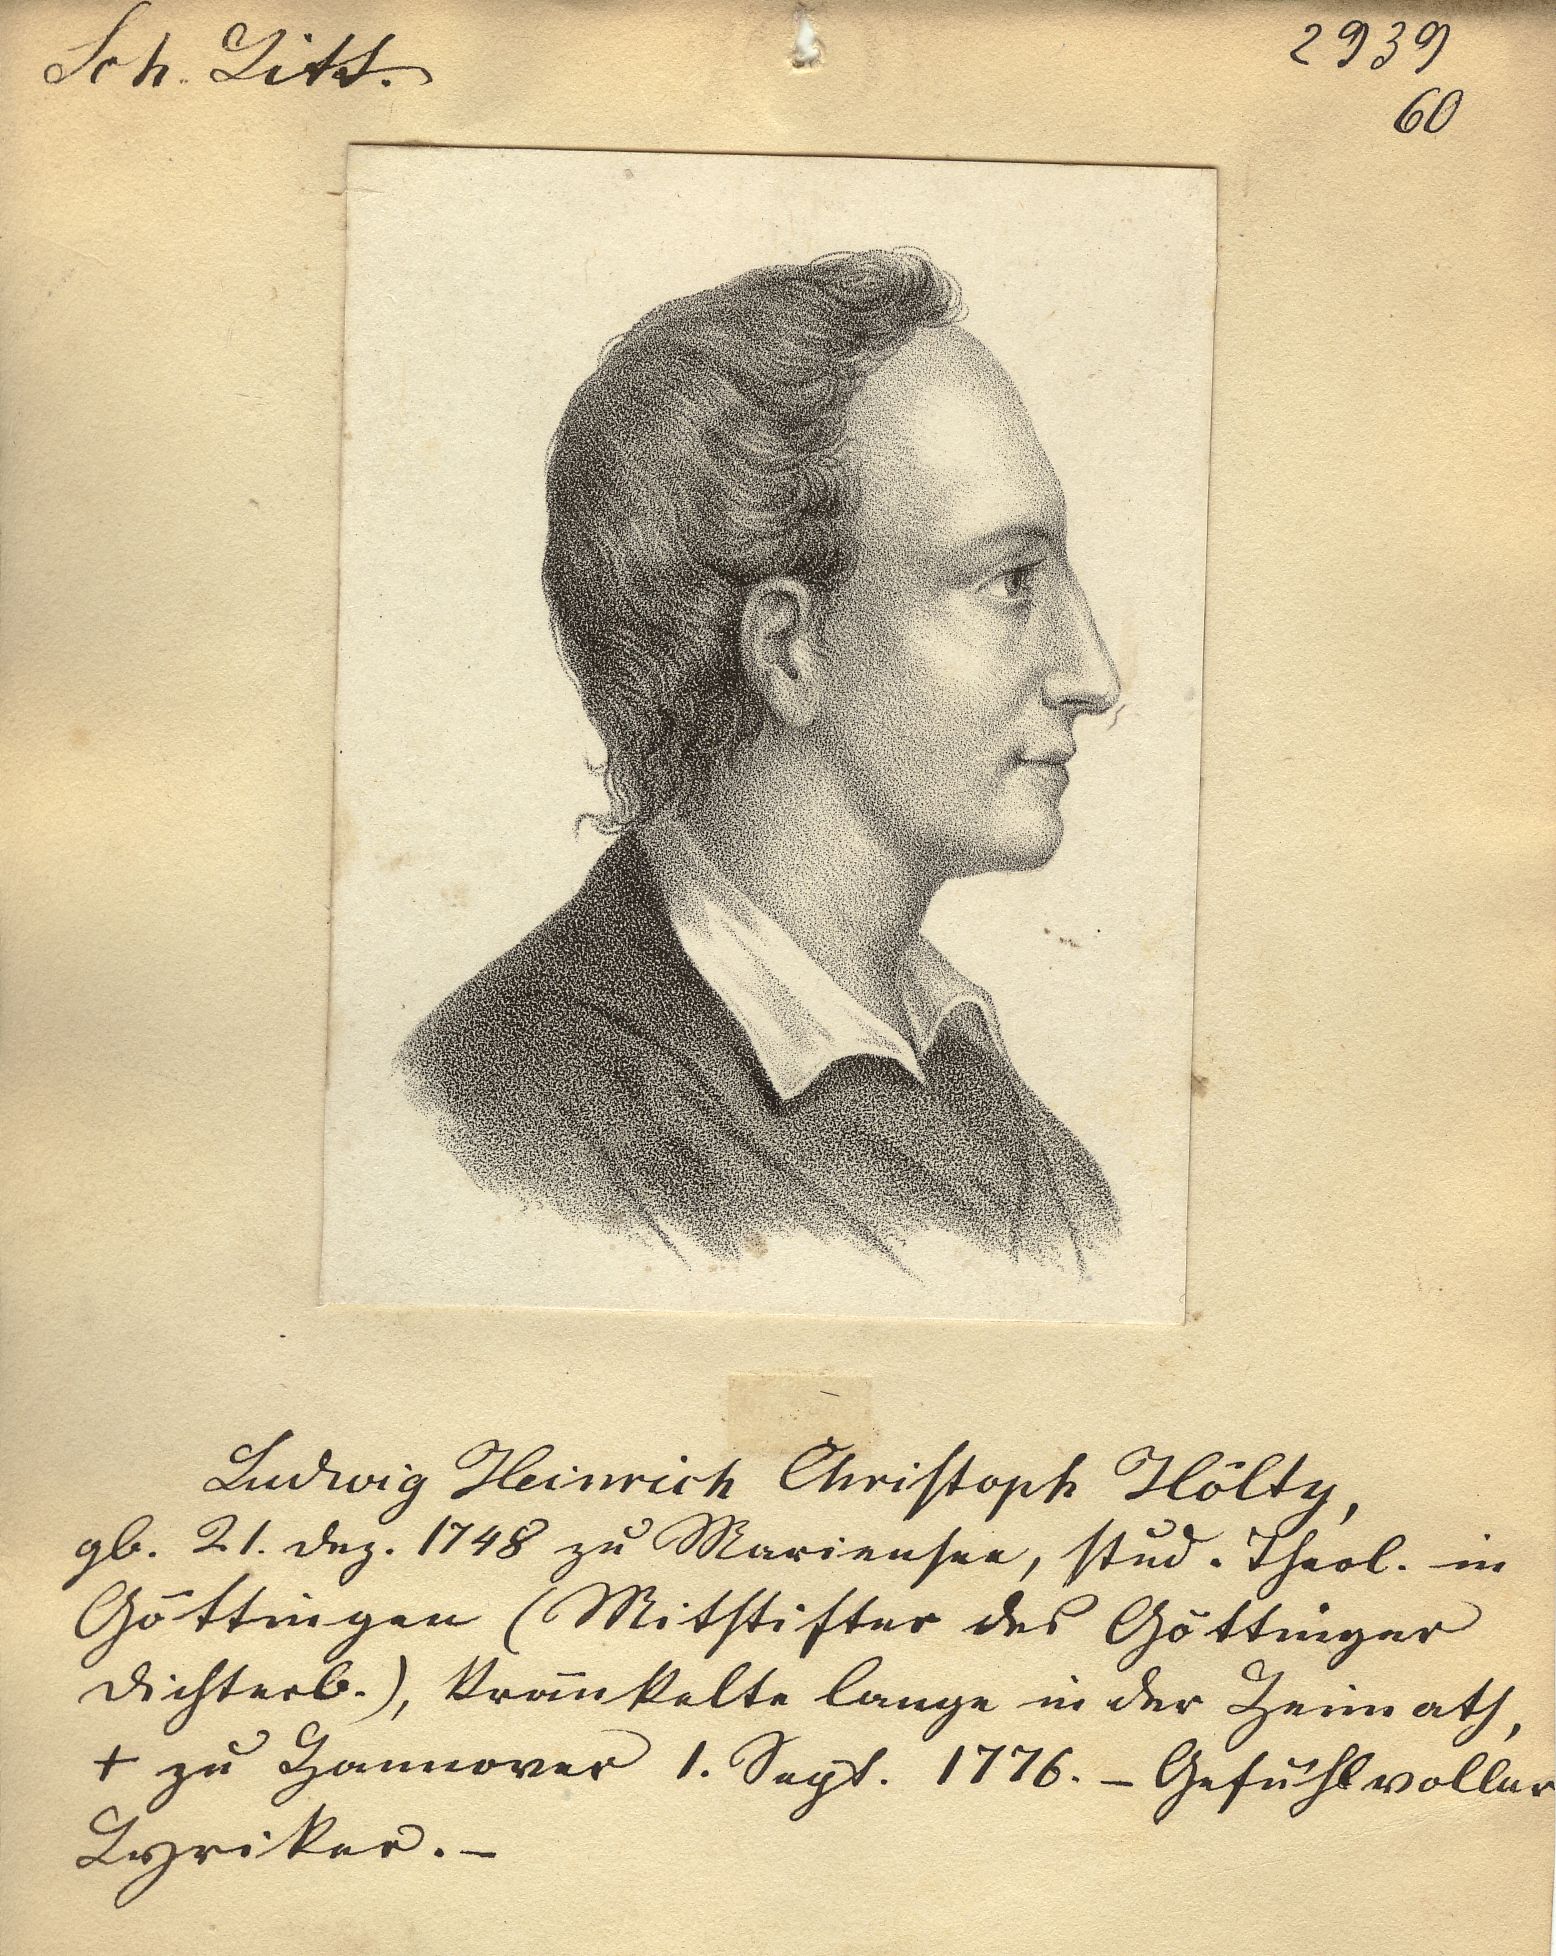 Sch. Litt.
2939
60
Ludwig Heinrich Christoph Hölty,
gb. 21. Dez. 1748 zu Mariensee, stud. Theol. in
Göttingen (Mitstifter des Göttinger
Dichterb.), kränkelte lange in der Heimath,
† zu Hannover 1. Sept. 1776. – Gefühlvoller
Lyriker. –